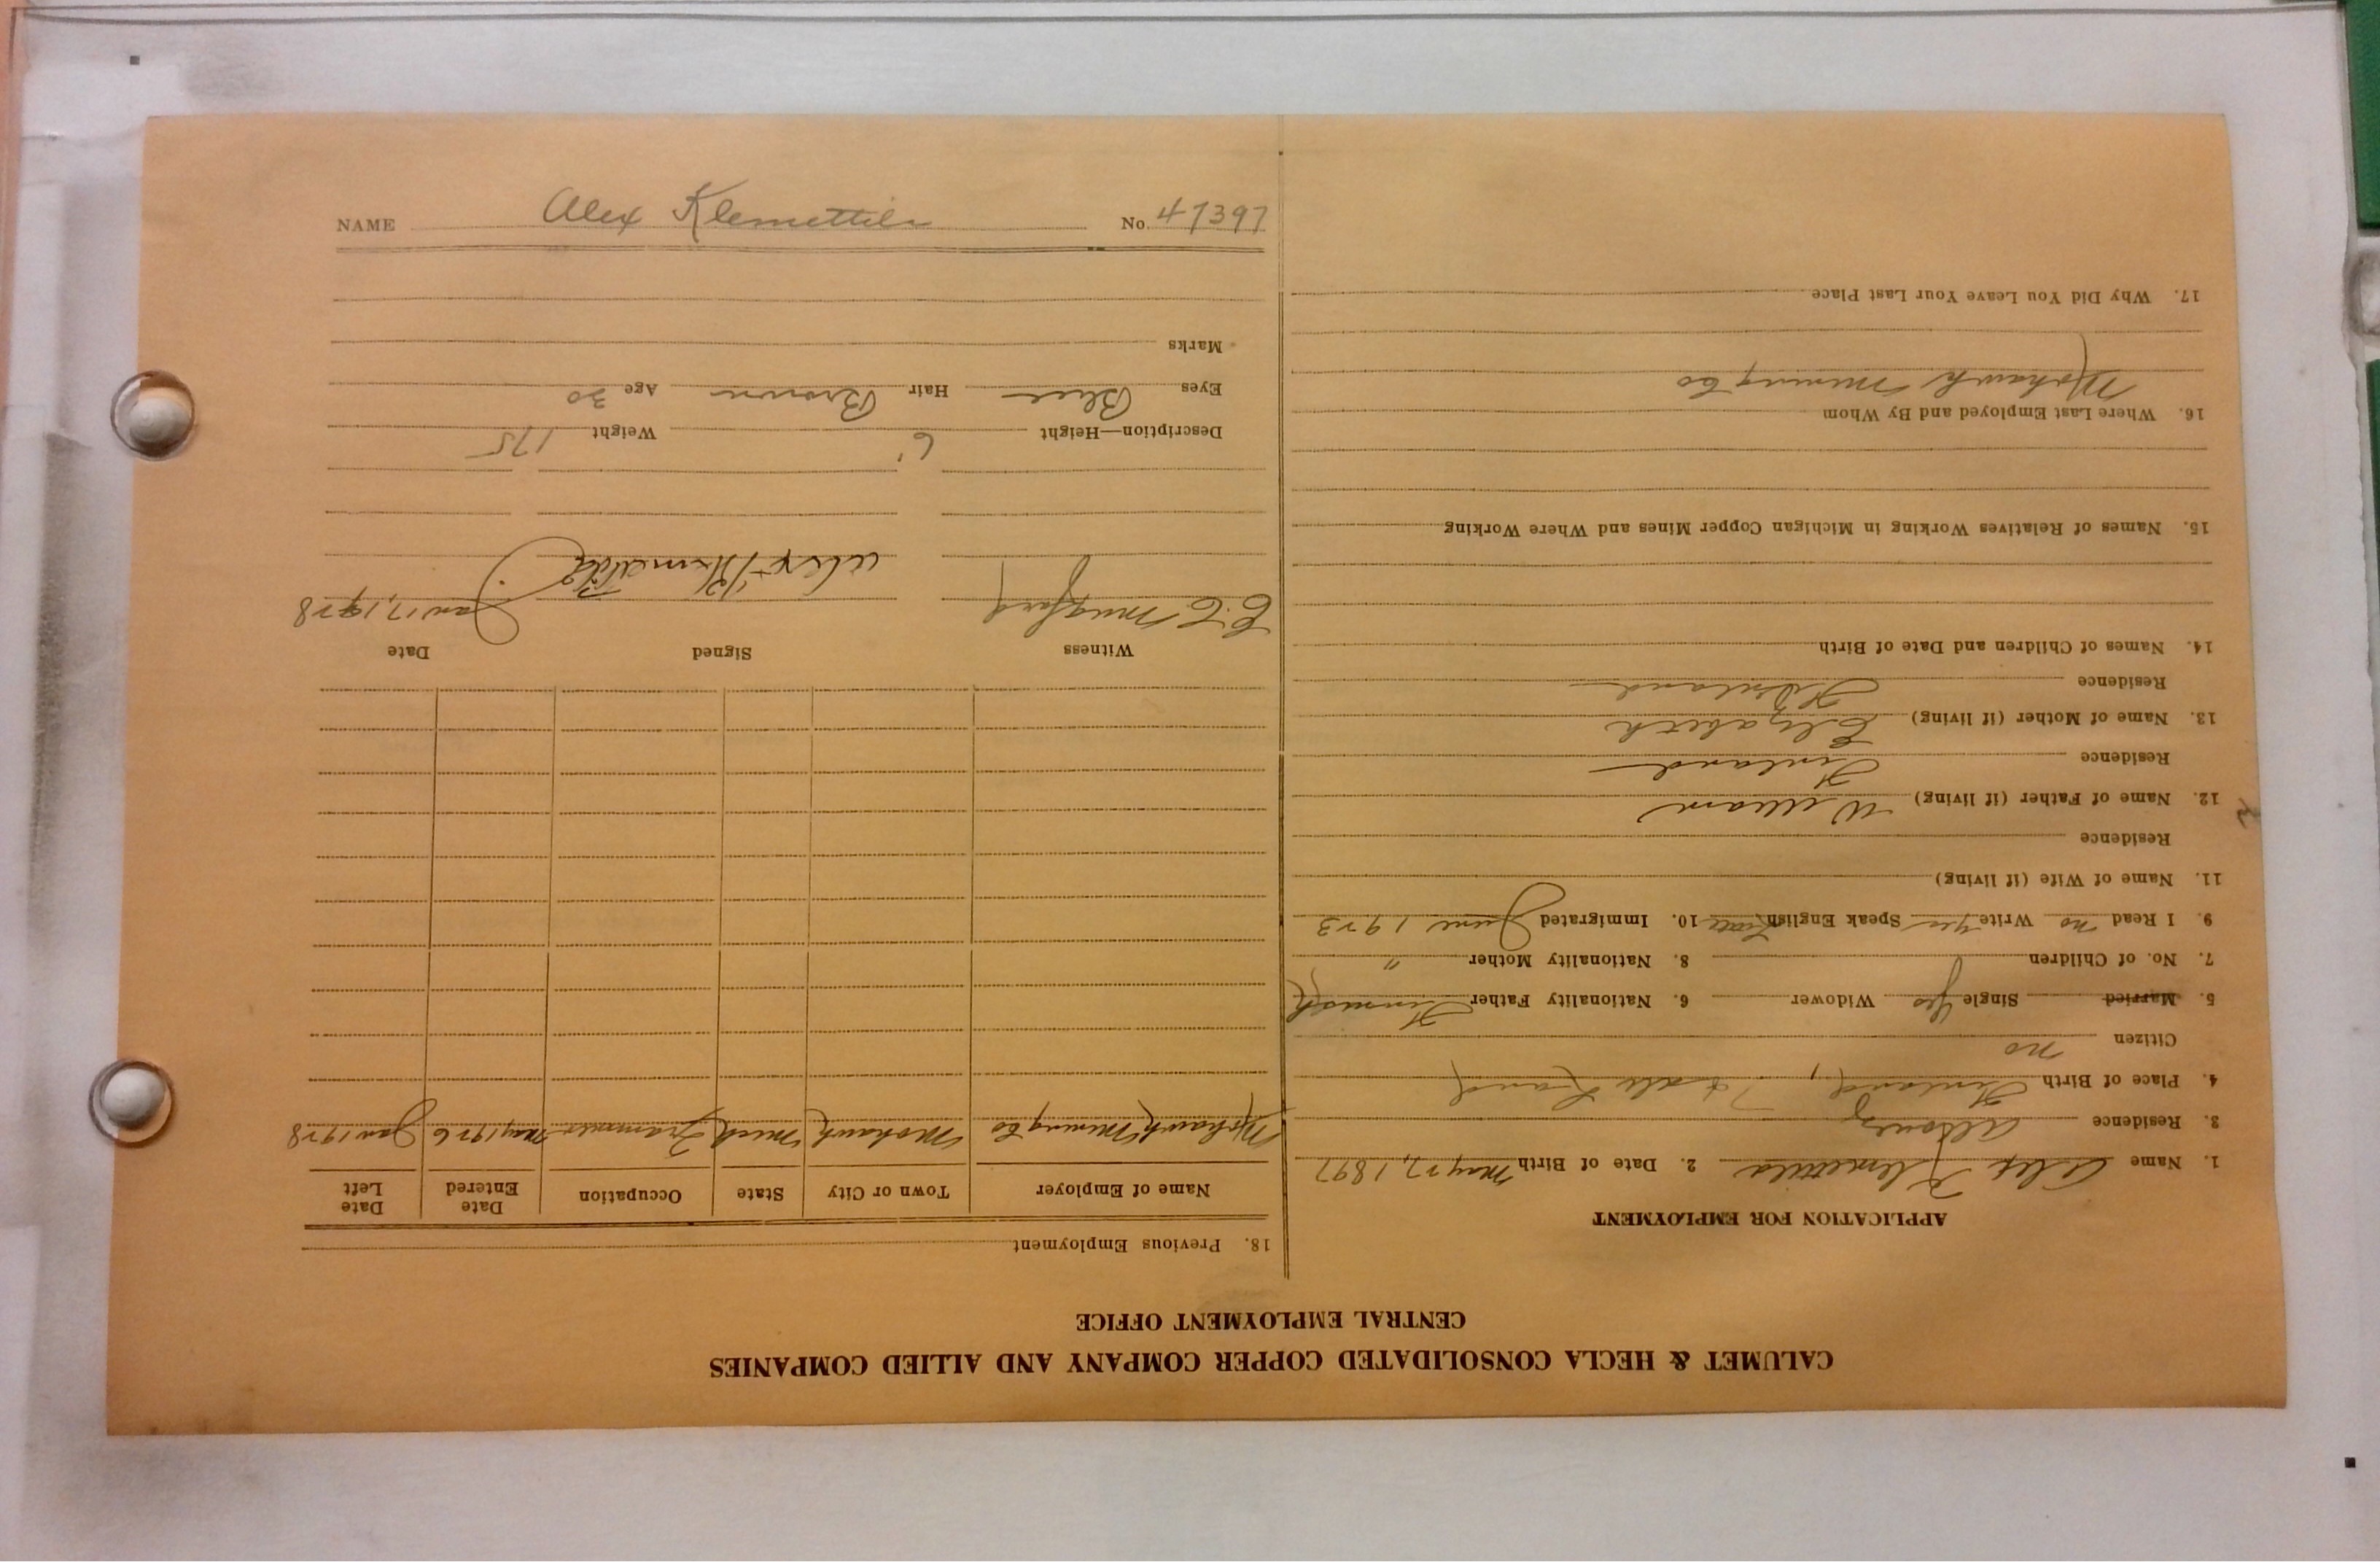 CALUMET & HECLA CONSOLIDATED COPPER COMPANY AND ALLIED COMPANIES
CENTRAL EMPLOYMENT OFFICE
APPLICATION FOR EMPLOYMENT
1. Name Alex Klemettila 2. Date of Birth May 27, 1897
3. Residence Allouez
4. Place of Birth Finland,
Citizen no
5. Married Single Yes Widower 6. Nationality Father Finnish
7. No. of Children 8. Nationality Mother "
9. I Read no Write yes Speak English 10. Immigrated June 1923
11. Name of Wife (if living)
Residence
12. Name of Father (if living) William
Residence Finland
13. Name of Mother (if living) Elizabeth
Residence Finland
14. Names of Children and Date of Birth
15. Names of Relatives Working in Michigan Copper Mines and Where Working
16. Where Last Employed and By Whom
Mohawk Mining Co
17. Why Did You Leave Your Last Place
18. Previous Employment
Name of Employer Town or City State Occupation Date Entered Date Left
Mohawk Mining Co Mohawk Mich Trammer May 1926 Jan 1928
Witness Signed Date
Mugford Alex Klemettila Jan 17, 1928
Description—Height 6' Weight 175
Eyes Blue Hair Brown Age 30
Marks
NAME Alex Klemettila No. 47397